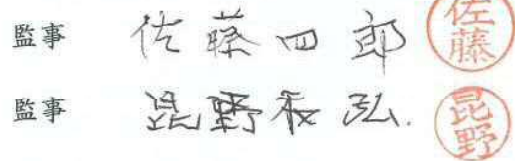 監事 佐藤四郎 佐藤
監事 昆野 弘 昆野